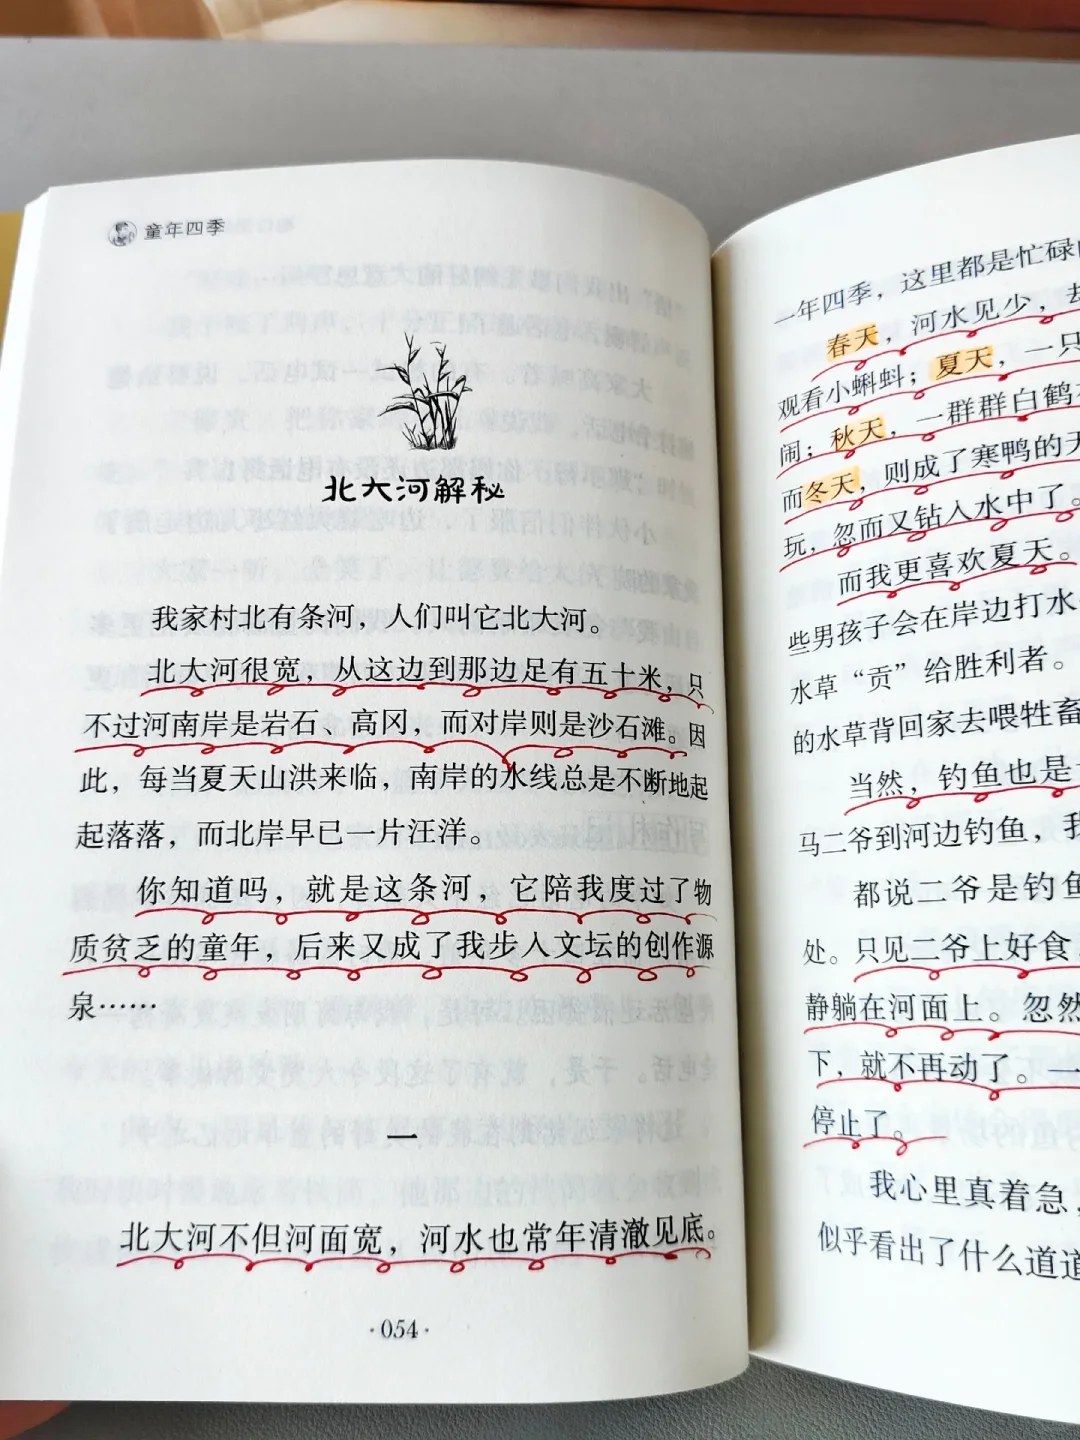 童年四季
北大河解秘
我家村北有条河，人们叫它北大河。
北大河很宽，从这边到那边足有五十米，只
不过河南岸是岩石、高冈，而对岸则是沙石滩。因
此，每当夏天山洪来临，南岸的水线总是不断地起
起落落，而北岸早已一片汪洋。
你知道吗，就是这条河，它陪我度过了物
质贫乏的童年，后来又成了我步入文坛的创作源
泉……
一
北大河不但河面宽，河水也常年清澈见底。
·054·
一年四季，这里都是忙碌
春天，河水见少，
观看小蝌蚪；夏天，一只
闹；秋天，一群群白鹤
而冬天，则成了寒鸭的天
玩，忽而又钻入水中了。
而我更喜欢夏天。
些男孩子会在岸边打水
水草“贡”给胜利者。
的水草背回家去喂牲畜
当然，钓鱼也是
马二爷到河边钓鱼，我
都说二爷是钓鱼
处。只见二爷上好食
静躺在河面上。忽然
下，就不再动了。一
停止了。
我心里真着急，
似乎看出了什么道道